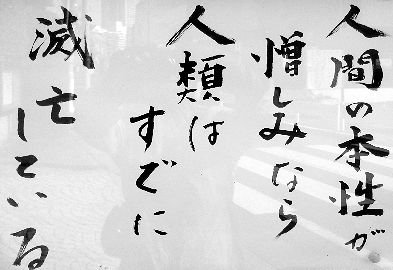 人間の本性が
憎しみなら
人類は
すでに
滅亡
している